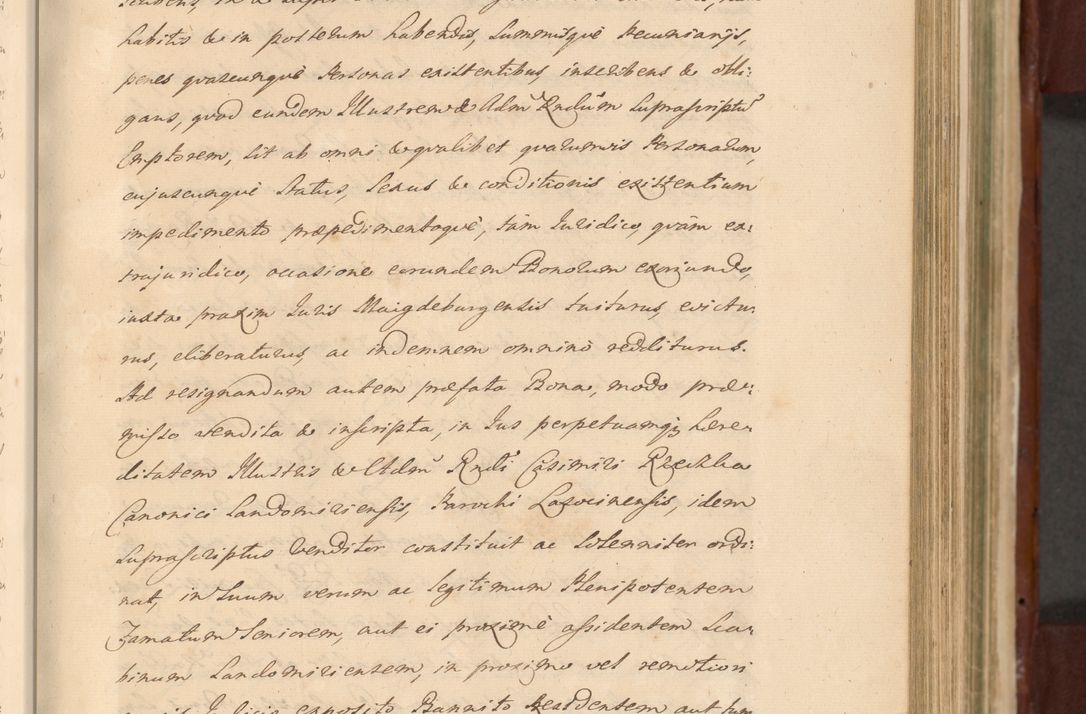 habitis & in posterum habendis, Summisque Pecuniarijs,
penes quascunque Personas existentibus, inscribens & obli:
gans, quod eundem Illustrem & Adm Rndum Suprascriptu
Emptorem, sit ab omni & qualibet quarumvis Personarum,
cujuscunque Status, Sexus & conditionis existentium
impedimento præpedimentoque, tàm Iuridico, quàm ex:
trajuridico, occasione eorundem Bonorum exoriundo,
iuxta praxim Iuris Maigdeburgensis tuiturus, evictu:
rus, eliberaturus, ac indemnem omnino redditurus.
Ad resignandum autem præfata Bona, modo præ:
misso vendita & inscripta, in Ius perpetuamq; hære:
ditatem Illustris & Adm Rndi Casimiri
Canonici Sandomiriensis, Parochi Lazocinensis, idem
Suprascriptus Venditor constituit ac Solenniter ordi:
nat, in Suum verum ac legitimum Plenipotentem
Famatum Seniorem, aut ei proximè assidentem Sca:
binum Sandomiriensem, in proximo vel remotiori
exposito Bannito Praesidentem aut tum